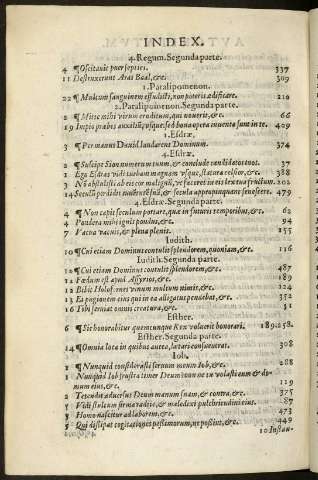 INDEX.
4. Regum. Segunda parte.
4 ¶ Oscitauit puer septies. 337
11 ¶ Destruxerunt Aras Baal, &c. 309
1. Paralipomenon.
22 ¶ Multum sanguinem effudisti, non poteris ædificare. 210
2. Paralipomenon. Segunda parte.
2 ¶ Mitte mihi virum eruditum, qui nouerit, &c. 66
19 Impio præbes auxiliũ, vsque sed bona opera inuenta sunt in te. 409
1. Esdræ,
3 ¶ Per manus Dauid laudarent Dominum. 374
4. Esdræ.
2 ¶ Suscipe Sion numerum tuum, & conclude candidatos tuos. 37
2 ¶ Ego Esdras vidi turbam magnam vsque, statura celsior, &c. 338
3 ¶ No abstulisti ab eis cor malignũ, vt faceret in eis lex tua fructum. 202
14 Seculũ perdidit iuuentutem, & secula appropinquant senescere. 479
4. Esdræ. Segunda parte.
4 ¶ Non capit seculum portare, quæ in futuris temporibus, &c. 62
4 ¶ Pondera mihi ignis pondus, &c. 94
7 ¶ Vacua vacuis, & plena plenis. 155
Iudith.
10 ¶ Cui etiam Dominus contulit splendorem, quoniam, &c. 116
Iudith. Segunda parte.
10 ¶ Cui etiam Dominus contulit splendorem, &c. 487
12 ¶ Fœdum est apud Assyrios, &c. 189
12 ¶ Bibit Holofernes vinum multum nimis, &c. 324
13 Et pugionem eius qui in ea alligatus pendebat, &c. 352
16 ¶ Tibi seruiat omnis creatura, &c. 31
Esther.
6 ¶ Sic honorabitur quemcunque Rex voluerit honorari. 189. 258.
Esther. Segunda parte.
14 ¶ Omnia lota in quibus antea, lætari consueuerat. 308
Iob.
1 ¶ Nunquid considerasti seruum meum Iob, &c. 288
1 ¶ Nunquid Iob frustra timet Deum? nonne tu vallasti eum & domum eius, &c. 119
2 ¶ Tetendit aduersus Deum manum suam, & contra, &c. 375
5 ¶ Vidi stultum firma radice, & maledixi pulchritudini eius. 87
5 ¶ Homo nascitur ad laborem, &c. 473
5 ¶ Qui dissipat cogitationes pessimorum, ne possint, &c. 449
10 Instau-